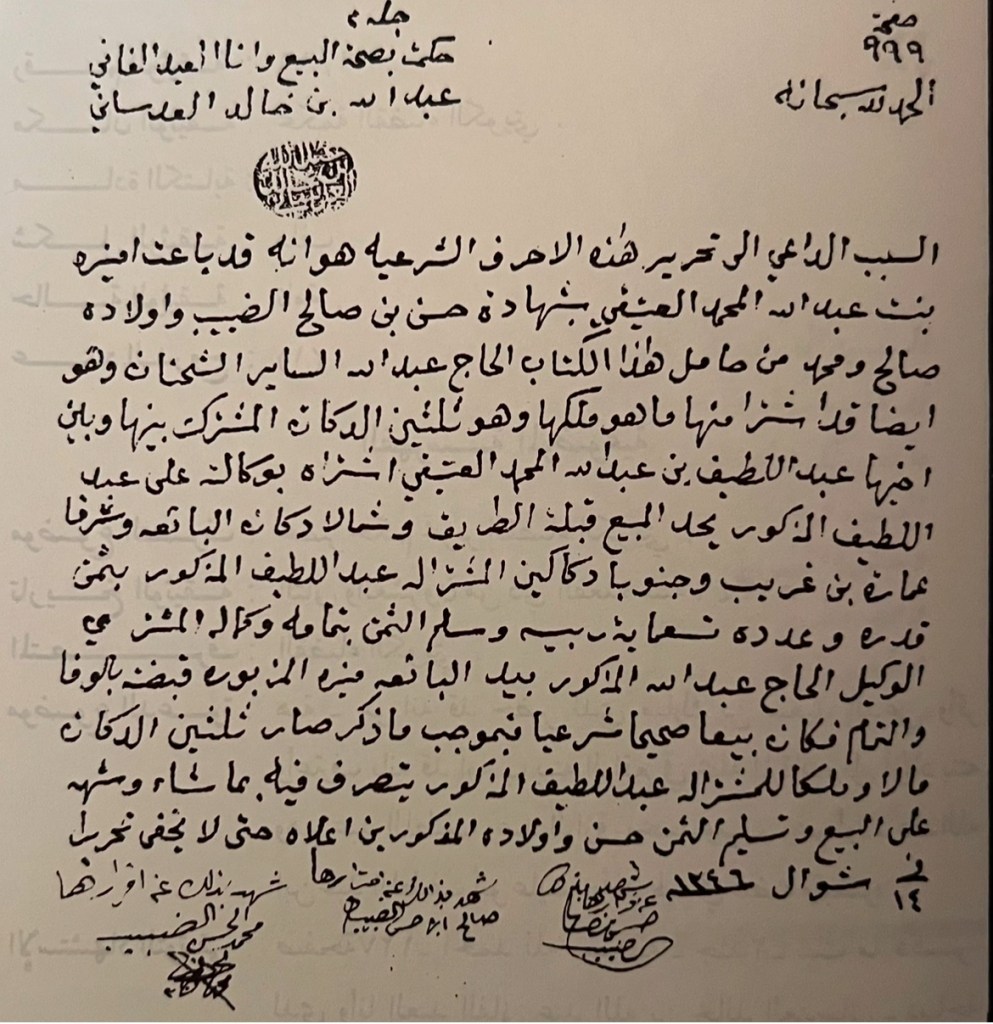 صفحة
٩٦٩
جلد ٢
الحمد لله سبحانه
حكمت بصحة البيع وانا العبد الفاني
عبد الله بن خالد العدساني
السبب الداعي الى تحرير هذه الاحرف الشرعيه هو انه قد باعت امنيره
بنت عبد الله المحمد العتيقي بشهادة حسن بن صالح الضبيب واولاده
صالح ومحمد من حامل هذا الكتاب الحاج عبد الله الساير الشحنان وهو
ايضا قد اشترا منها ما هو ملكها وهو ثلثين الدكان المشترك بينها وبين
اخيها عبد اللطيف بن عبد الله المحمد العتيقي اشتراه بوكالة على عبد
اللطيف المذكور يحد المبيع قبلة الطريق وشمالا دكان البائعه وشرقا
عمارة بن غريب وجنوبا دكاكين المشتراله عبد اللطيف المذكور بثمن
قدره وعدده تسعماية ربيه وسلم الثمن بتمامه وكماله المشتري
الوكيل الحاج عبد الله المذكور بيد البائعه منيره المزبوره قبضته بالوفا
والتمام فكان بيعا صحيحا شرعيا فبموجب ما ذكر صار ثلثين الدكان
مالا وملكا للمشتراله عبد اللطيف المذكور يتصرف فيه بما شاء وشهد
على البيع وتسليم الثمن حسن واولاده المذكورين اعلاه حتى لا يخفى تحريرا
في ١٤ شوال ١٣٤٦
شهد بذلك عن اقرارها
محمد الحسن الضبيب
صالح ابن حسن الضبيب